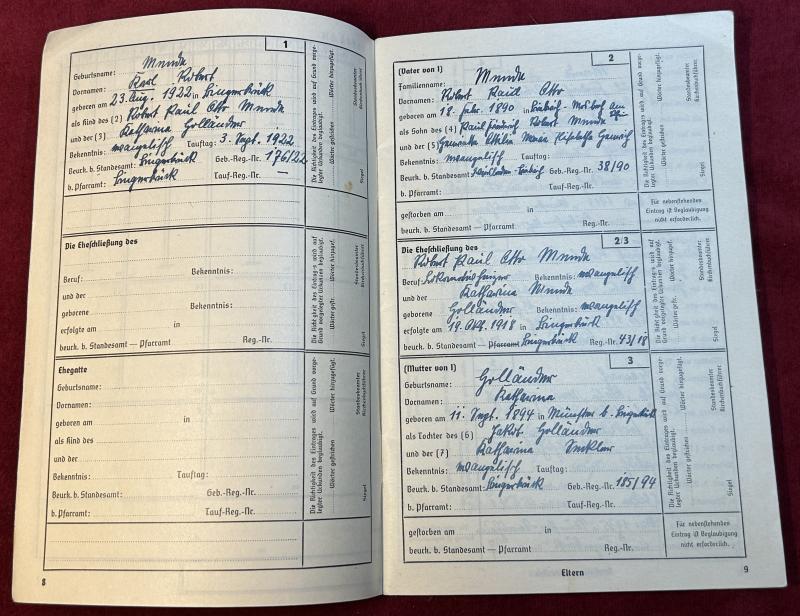 1
Geburtsname: Munda
Vornamen: Karl Robert
geboren am 23. Aug. 1922 in Bingerbrück
als Kind des (2) Robert Paul Otto Munda
und der (3) Katharina Holländer
Bekenntnis: evangelisch Tauftag: 3. Sept. 1922
Beurk. b. Standesamt: Bingerbrück Geb.-Reg.-Nr. 176/22
b. Pfarramt: Bingerbrück Tauf.-Reg.-Nr. —
Die Richtigkeit des Eintrages wird auf Grund vorge-
legter Urkunden beglaubigt.
Wörter gestrichen Wörter hinzugefügt.
Siegel
Standesbeamter
Kirchenbuchführer
Die Eheschließung des
Beruf: Bekenntnis:
und der
geborene Bekenntnis:
erfolgte am in
beurk. b. Standesamt — Pfarramt Reg.-Nr.
Die Richtigkeit des Eintrages wird auf
Grund vorgelegter Urkunden beglaubigt.
Wörter gestr. Wörter hinzugef.
Siegel
Standesbeamter
Kirchenbuchführer
Ehegatte
Geburtsname:
Vornamen:
geboren am in
als Kind des
und der
Bekenntnis: Tauftag:
Beurk. b. Standesamt: Geb.-Reg.-Nr.
b. Pfarramt: Tauf-Reg.-Nr.
Die Richtigkeit des Eintrages wird auf Grund vorge-
legter Urkunden beglaubigt.
Wörter gestrichen Wörter hinzugefügt.
Siegel
Standesbeamter
Kirchenbuchführer
8
(Vater von 1) 2
Familienname: Munda
Vornamen: Robert Paul Otto
geboren am 18. Febr. 1890 in
als Sohn des (4) Robert Munda
und der (5)
Bekenntnis: evangelisch Tauftag:
Beurk. b. Standesamt: Geb.-Reg.-Nr. 38/90
b. Pfarramt: Tauf-Reg.-Nr.
Die Richtigkeit des Eintrages wird auf Grund vorge-
legter Urkunden beglaubigt.
Wörter gestrichen Wörter hinzugefügt.
Siegel
Standesbeamter
Kirchenbuchführer
gestorben am in
beurk. b. Standesamt — Pfarramt Reg.-Nr.
Für nebenstehenden
Eintrag ist Beglaubigung
nicht erforderlich.
Die Eheschließung des 2/3
Robert Paul Otto Munda
Beruf: Bekenntnis: evangelisch
und der Katharina Munda
geborene Holländer Bekenntnis: evangelisch
erfolgte am 19. Okt. 1918 in Bingerbrück
beurk. b. Standesamt — Pfarramt Bingerbrück Reg.-Nr. 43/18.
Die Richtigkeit des Eintrages wird auf
Grund vorgelegter Urkunden beglaubigt.
Wörter gestr. Wörter hinzugef.
Siegel
Standesbeamter
Kirchenbuchführer
(Mutter von 1) 3
Geburtsname: Holländer
Vornamen: Katharina
geboren am 11. Sept. 1894 in Münster b. Bingerbrück
als Tochter des (6) Jakob Holländer
und der (7) Katharina
Bekenntnis: evangelisch Tauftag:
Beurk. b. Standesamt: Bingerbrück Geb.-Reg.-Nr. 185/94
b. Pfarramt: Tauf-Reg.-Nr.
Die Richtigkeit des Eintrages wird auf Grund vorge-
legter Urkunden beglaubigt.
Wörter gestrichen Wörter hinzugefügt.
Siegel
Standesbeamter
Kirchenbuchführer
gestorben am in
beurk. b. Standesamt — Pfarramt Reg.-Nr.
Für nebenstehenden
Eintrag ist Beglaubigung
nicht erforderlich.
Eltern
9